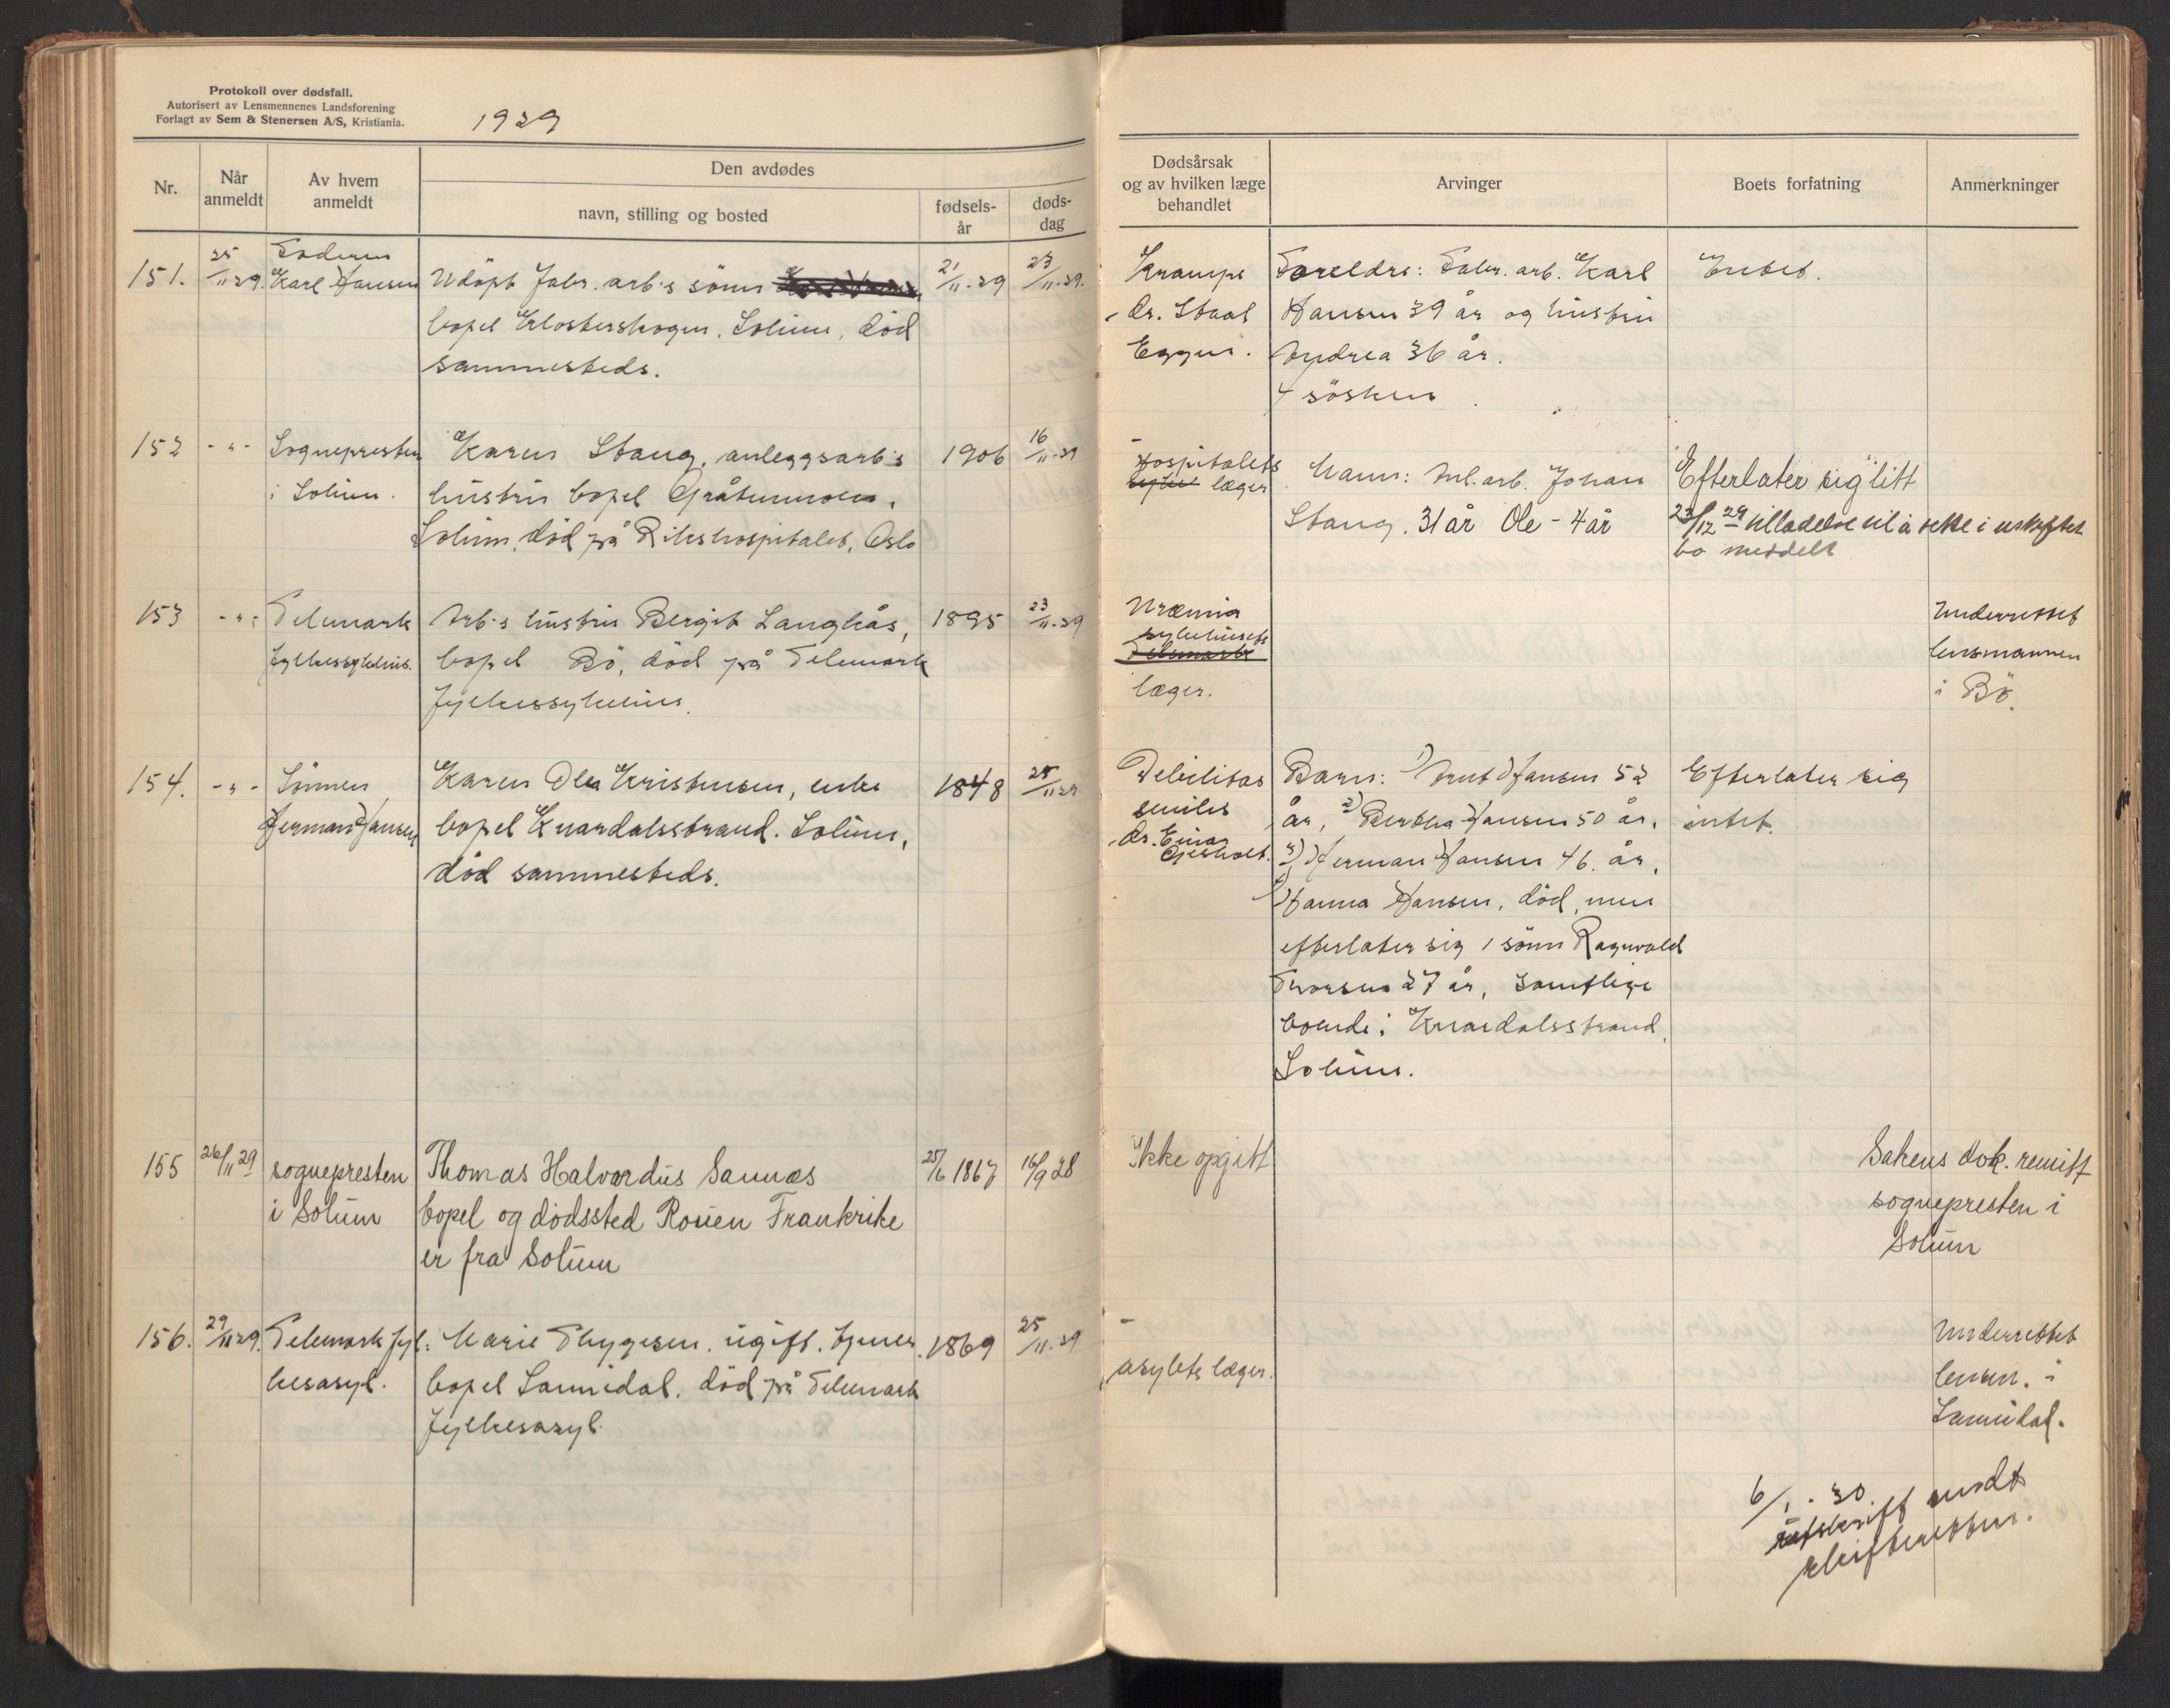 Protokoll over dødsfall.
Autorisert av Lensmennenes Landsforening
Forlagt av Sem & Stenersen A/S, Kristiania.
1929
Nr.
Når anmeldt
Av hvem anmeldt
Den avdødes
navn, stilling og bosted
fødsels-år
døds-dag
Dødsårsak og av hvilken læge behandlet
Arvinger
Boets forfatning
Anmerkninger
151.
25/11 29.
Faderen
Karl Hansen
Udöpt Fabr. arb.s sönn
bopel Klosterskogen, Solum, död
sammesteds.
21/11-29
23/11-29.
Krampe
dr. Staal
Eggen.
Foreldre: Fabr. arb. Karl
Hansen 39 år og hustru
Andrea 36 år.
4 sösken
Intet.
152
-"-
Sognepresten
i Solum.
Karen Stang, anleggsarb.s
hustru bopel Gråtenmoen,
Solum, död på Rikshospitalet, Oslo
1906
16/11-29
-
Hospitalets
læger
Mann: Anl. arb. Johan
Stang. 31 år Ole - 4 år
Efterlater sig litt
23/12 29 tilladelse til å sitte i uskiftet
bo meddelt
153
-"-
Telemark
fylkessykehus.
Arb.s hustru Bergit Langkås,
bopel Bö, död på Telemark
fylkessykehus.
1895
23/11-29
Uræmia
sykehusets
Telemark
læger.
Underrettet
lensmannen
i Bö.
154.
-"-
Sönnen
Herman Hansen
Karen Olea Kristensen, enke
bopel Knardalsstrand. Solum,
död sammesteds.
1848
25/11 29
Debilitas
senilis
dr. Einar
Gjesholt.
Barn: 1) Knut Hansen 52
år, 2) Bertha Hansen 50 år,
3) Herman Hansen 46 år,
4) Hanna Hansen, död, men
efterlater sig 1 sönn Ragnvald
Thorsen 27 år, samtlige
boende i Knardalsstrand,
Solum.
Efterlater sig
intet.
155
26/11 29
sognepresten
i Solum
Thomas Halvardus Sannæs
bopel og dödssted Rouen Frankrike
er fra Solum
25/6 1867
16/9 28
Ikke opgitt
Sakens dok. remitt
sognepresten i
Solum
156.
29/11 29.
Telemark fyl-
kesasyl.
Marie Thygesen, ugift, tjener,
bopel Sannidal, död på Telemark
fylkesasyl.
1869
25/11-29
-
asylets læger.
Underrettet
lensm. i
Sannidal.
6/1 - 30
utskrift sendt
skifteretten.